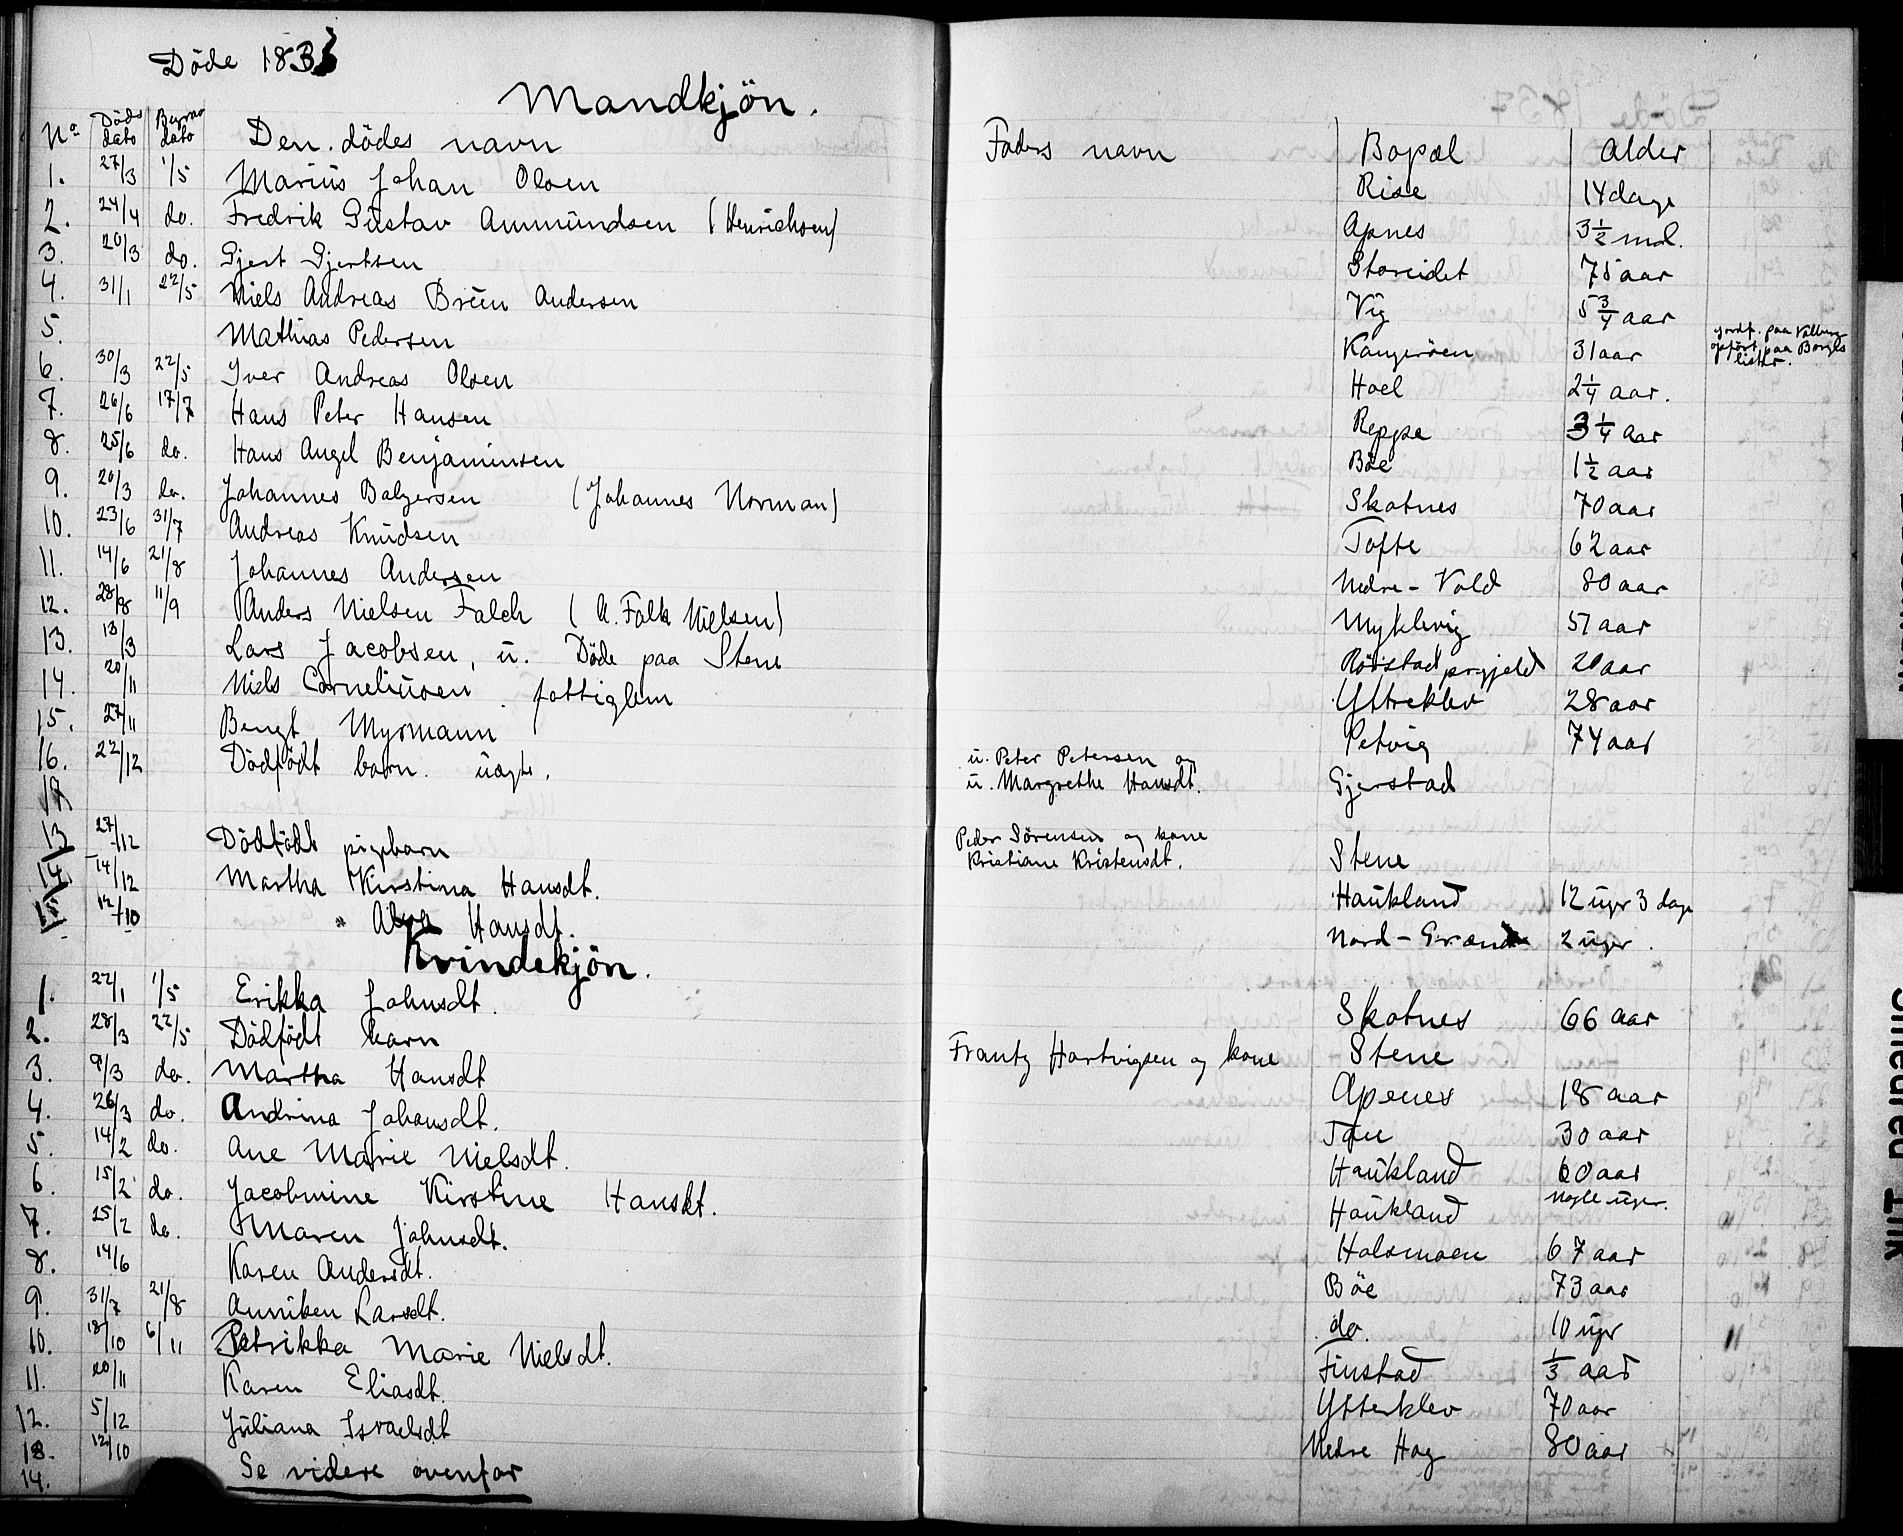 Döde 183
Mandkjön.
No Döds dato Begrav dato Den dödes navn Faders navn Bopæl Alder
1. 27/3 1/5 Marius Johan Olsen Rise 14 dage
2. 24/4 do. Fredrik Gustav Ammundsen (Henrichsen) Apnes 3½ md.
3. 20/3 do. Gjert Gjertsen Storeidet 75 aar
4. 31/1 22/5 Niels Andreas Brun Andersen Vig 5¾ aar
5. Mathias Pedersen Kangeröen 31 aar jordf. paa opfört paa Borgs listter.
6. 30/3 22/5 Iver Andreas Olsen Hoel 2¼ aar.
7. 26/6 17/7 Hans Peter Hansen Reppe 3¼ aar
8. 25/6 do. Hans Angel Benjaminsen Böe 1½ aar
9. 20/3 do. Johannes Balzersen (Johannes Norman) Skotnes 70 aar
10. 23/6 31/7 Andreas Knudsen Tofte 62 aar
11. 14/6 21/8 Johannes Andersen Nedre-Vold 80 aar
12. 28/8 11/9 Anders Nielsen Falch (A. Falk Nielsen) Myklevig 57 aar
13. 13/3 Lars Jacobsen, u. Döde paa Stene Rödstad prgjeld 20 aar
14. 20/11 Niels Corneliusen fattiglem Yttreklev 28 aar
15. 27/11 Bengt Myrmann Petvig 74 aar
16. 22/12 Dödfödt barn. uægte. u. Peter Petersen og u. Margrethe Hansdt. Gjerstad
17
13 27/12 Dödfödt pigebarn Peder Sörensen og kone Kristiane Kristensdt. Stene
14 14/12 Martha Kirstina Hansdt. Haukland 12 uger 3 dage
15 12/10 " Hansdt. Nord- 2 uger.
Kvindekjön.
1. 22/1 1/5 Erikka Johnsdt. Skotnes 66 aar
2. 28/3 22/5 Dödfödt barn Frantz Hartvigsen og kone Stene
3. 9/3 do. Martha Hansdt Apenes 18 aar
4. 26/3 do. Andrina Johansdt. Tofte 30 aar
5. 14/2 do. Ane Marie Nielsdt. Haukland 60 aar
6. 15/2 do. Jacobmine Kirstine Hansdt. Haukland nogle uger.
7. 25/2 do. Maren Johnsdt. Holsmoen 67 aar
8. 14/6 Karen Andersdt. Böe 73 aar
9. 31/7 21/8 Anniken Larsdt. do. 10 uger
10. 18/10 6/11 Petrikka Marie Nielsdt. Finstad ⅓ aar
11. 20/11 Karen Eliasdt. Ytterklev 70 aar
12. 5/12 Juliana Israelsdt Nedre Hag 80 aar
13. 12/10 Se videre ovenfor
14.